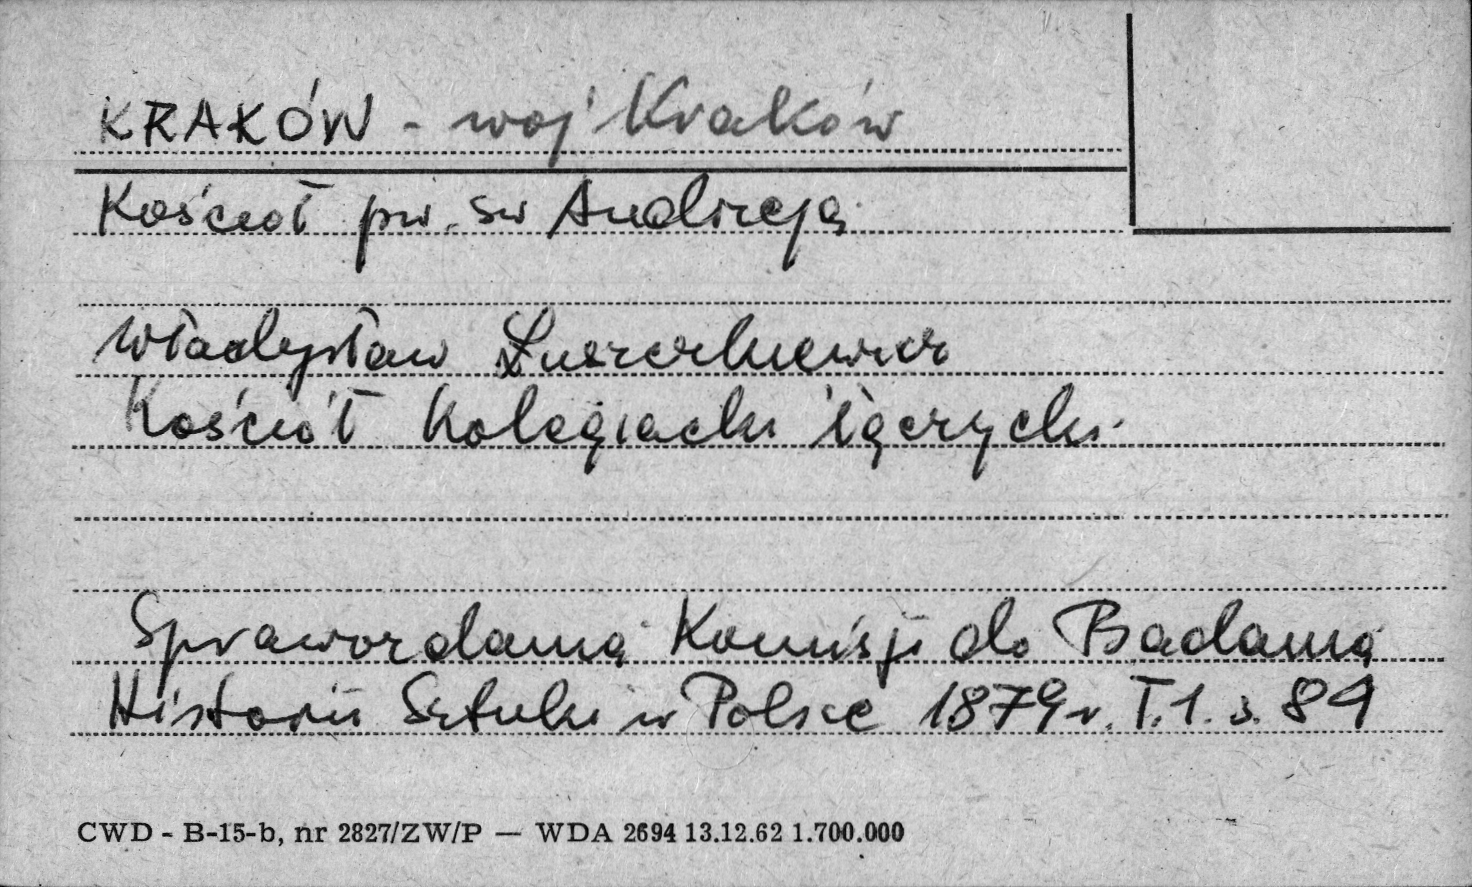 KRAKÓW - woj Kraków
Kościoł pw. sw Andrzeja
Władysław Łuszczkiewicz
Kościół Kolegiacki łęczycki.
Sprawozdania Komisji do Badania
Historii Sztuki w Polsce 1879 r. T.1. s. 89
CWD - B-15-b, nr 2827/ZW/P — WDA 2694 13.12.62 1.700.000